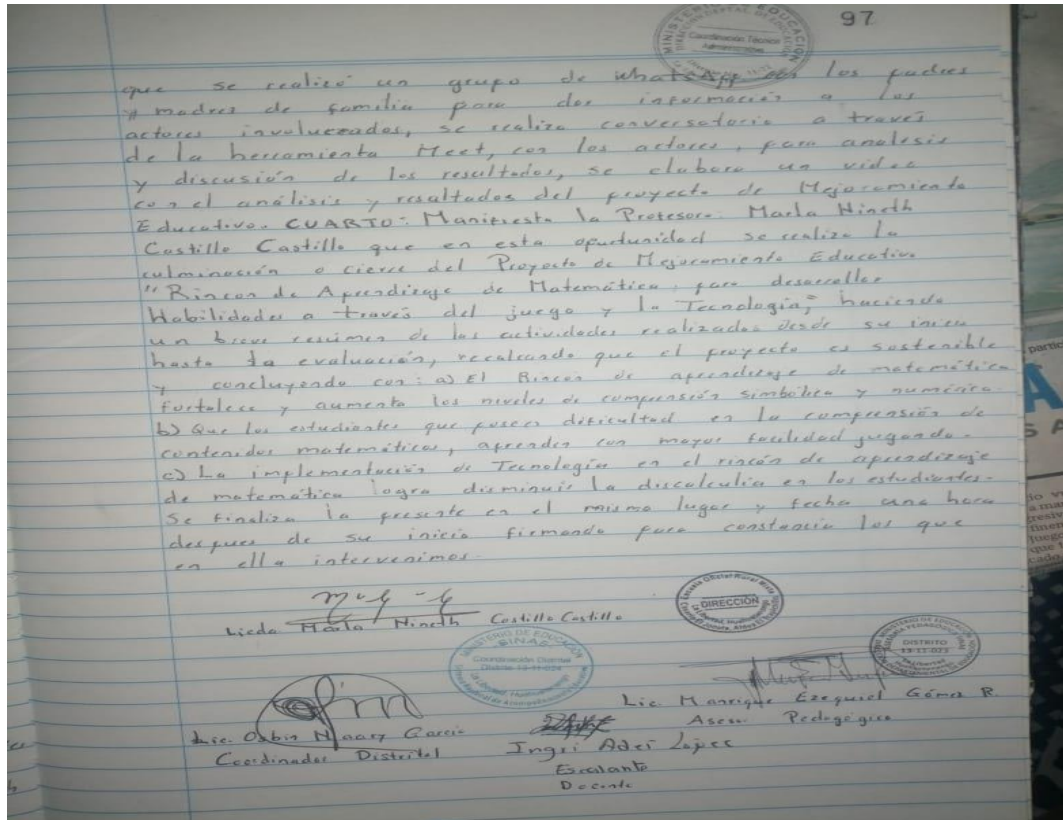 97
MINISTERIO DE EDUCACIÓN
Coordinación Técnica
Administrativa
que se realizó un grupo de WhatsApp con los padres
y madres de familia para dar información a los
actores involucrados, se realiza conversatorio a través
de la herramienta Meet, con los actores, para analisis
y discusión de los resultados, se elaboro un video
con el análisis y resultados del proyecto de Mejoramiento
Educativo. CUARTO: Manifiesta la Profesora Marla Nineth
Castillo Castillo que en esta oportunidad se realiza la
culminación o cierre del Proyecto de Mejoramiento Educativo
"Rincon de Aprendizaje de Matemática para desarrollar
Habilidades a través del juego y la Tecnología", haciendo
un breve resúmen de las actividades realizadas desde su inicio
hasta la evaluación, recalcando que el proyecto es sostenible
y concluyendo con: a) El Rincon de aprendizaje de matemática
fortalece y aumenta los niveles de comprensión simbólica y numérica.
b) Que los estudiantes que poseen dificultad en la comprensión de
contenidos matemáticos, aprenden con mayor facilidad jugando.
c) La implementación de Tecnología en el rincón de aprendizaje
de matemática logra disminuir la discalculia en los estudiantes.
Se finaliza la presente en el mismo lugar y fecha una hora
despues de su inicio firmando para constancia los que
en ella intervenimos.
Licda. Marla Nineth Castillo Castillo
DIRECCIÓN
MINISTERIO DE EDUCACIÓN
SINAE
Coordinación Distrital
La Libertad, Huehuetenango
DISTRITO
13-11-023
La Libertad
Lic. Manrique Ezequiel Gómez R.
Asesor Pedagógico
Lic. Osbin Garcia
Coordinador Distrital
Ingri Adei López
Escalante
Docente